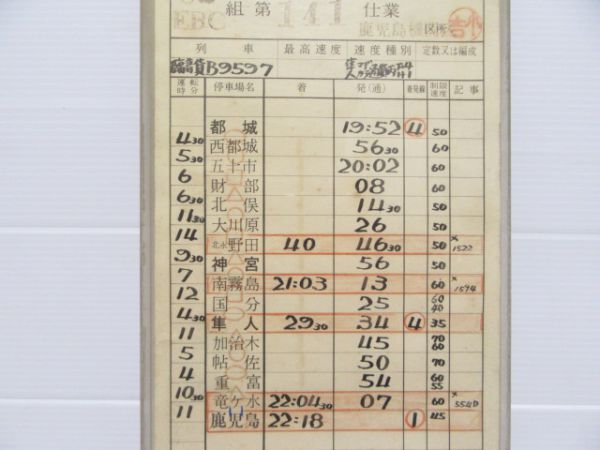 EBC 組第 141 仕業
鹿児島機関区所
列車 最高速度 速度種別 定数又は編成
臨貨B9597
運転時分 停車場名 着 発(通) 着発線 制限速度 記事
都城 19:52 4 50
4 30 西都城 56 30 60
5 30 五十市 20:02 60
6 財部 08 60
6 30 北俣 14 30 50
11 30 大川原 26 50
14 北永野田 40 46 30 50 ×1522
9 30 神宮 56 50
7 南霧島 21:03 13 60 ×1594
12 国分 25 60 40
4 30 隼人 29 30 34 4 35
11 加治木 45 70 60
5 帖佐 50 70
4 重富 54 60 55
10 30 竜ケ水 22:04 30 07 60 ×554D
11 鹿児島 22:18 1 45